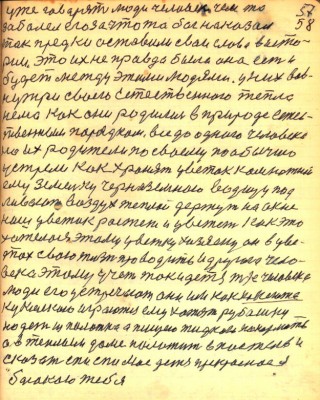 57
58
уже говарят люди человек чем то
заболел его за что то бог наказал
так предки оставили свои слова в исто
рии это их не правда была она есть и
будет между этими людями. у них вов
нутри своего естественного тепла
нема как они родились в природе есте
ственным порядком все до одного человека
но их родители по своему по обычаю
устрели как хранят цветок комнатный
ему земельку черназемного водицу под
ливают воздух теплый держут на окне
наш цветок растет и цветет как это
хотелось этому цветку хозяину он в цве
тах свою жизнь проводить и другого чело
века этому учет так и дети тоже человека
люди его устречают они им как на
куклою играются ему хотят рубашку
надеть и пеленка а пищею жидкой накормить
а в теплым доме положить в постель и
сказать спи спи мое детя прекрасное я
богокою тебя